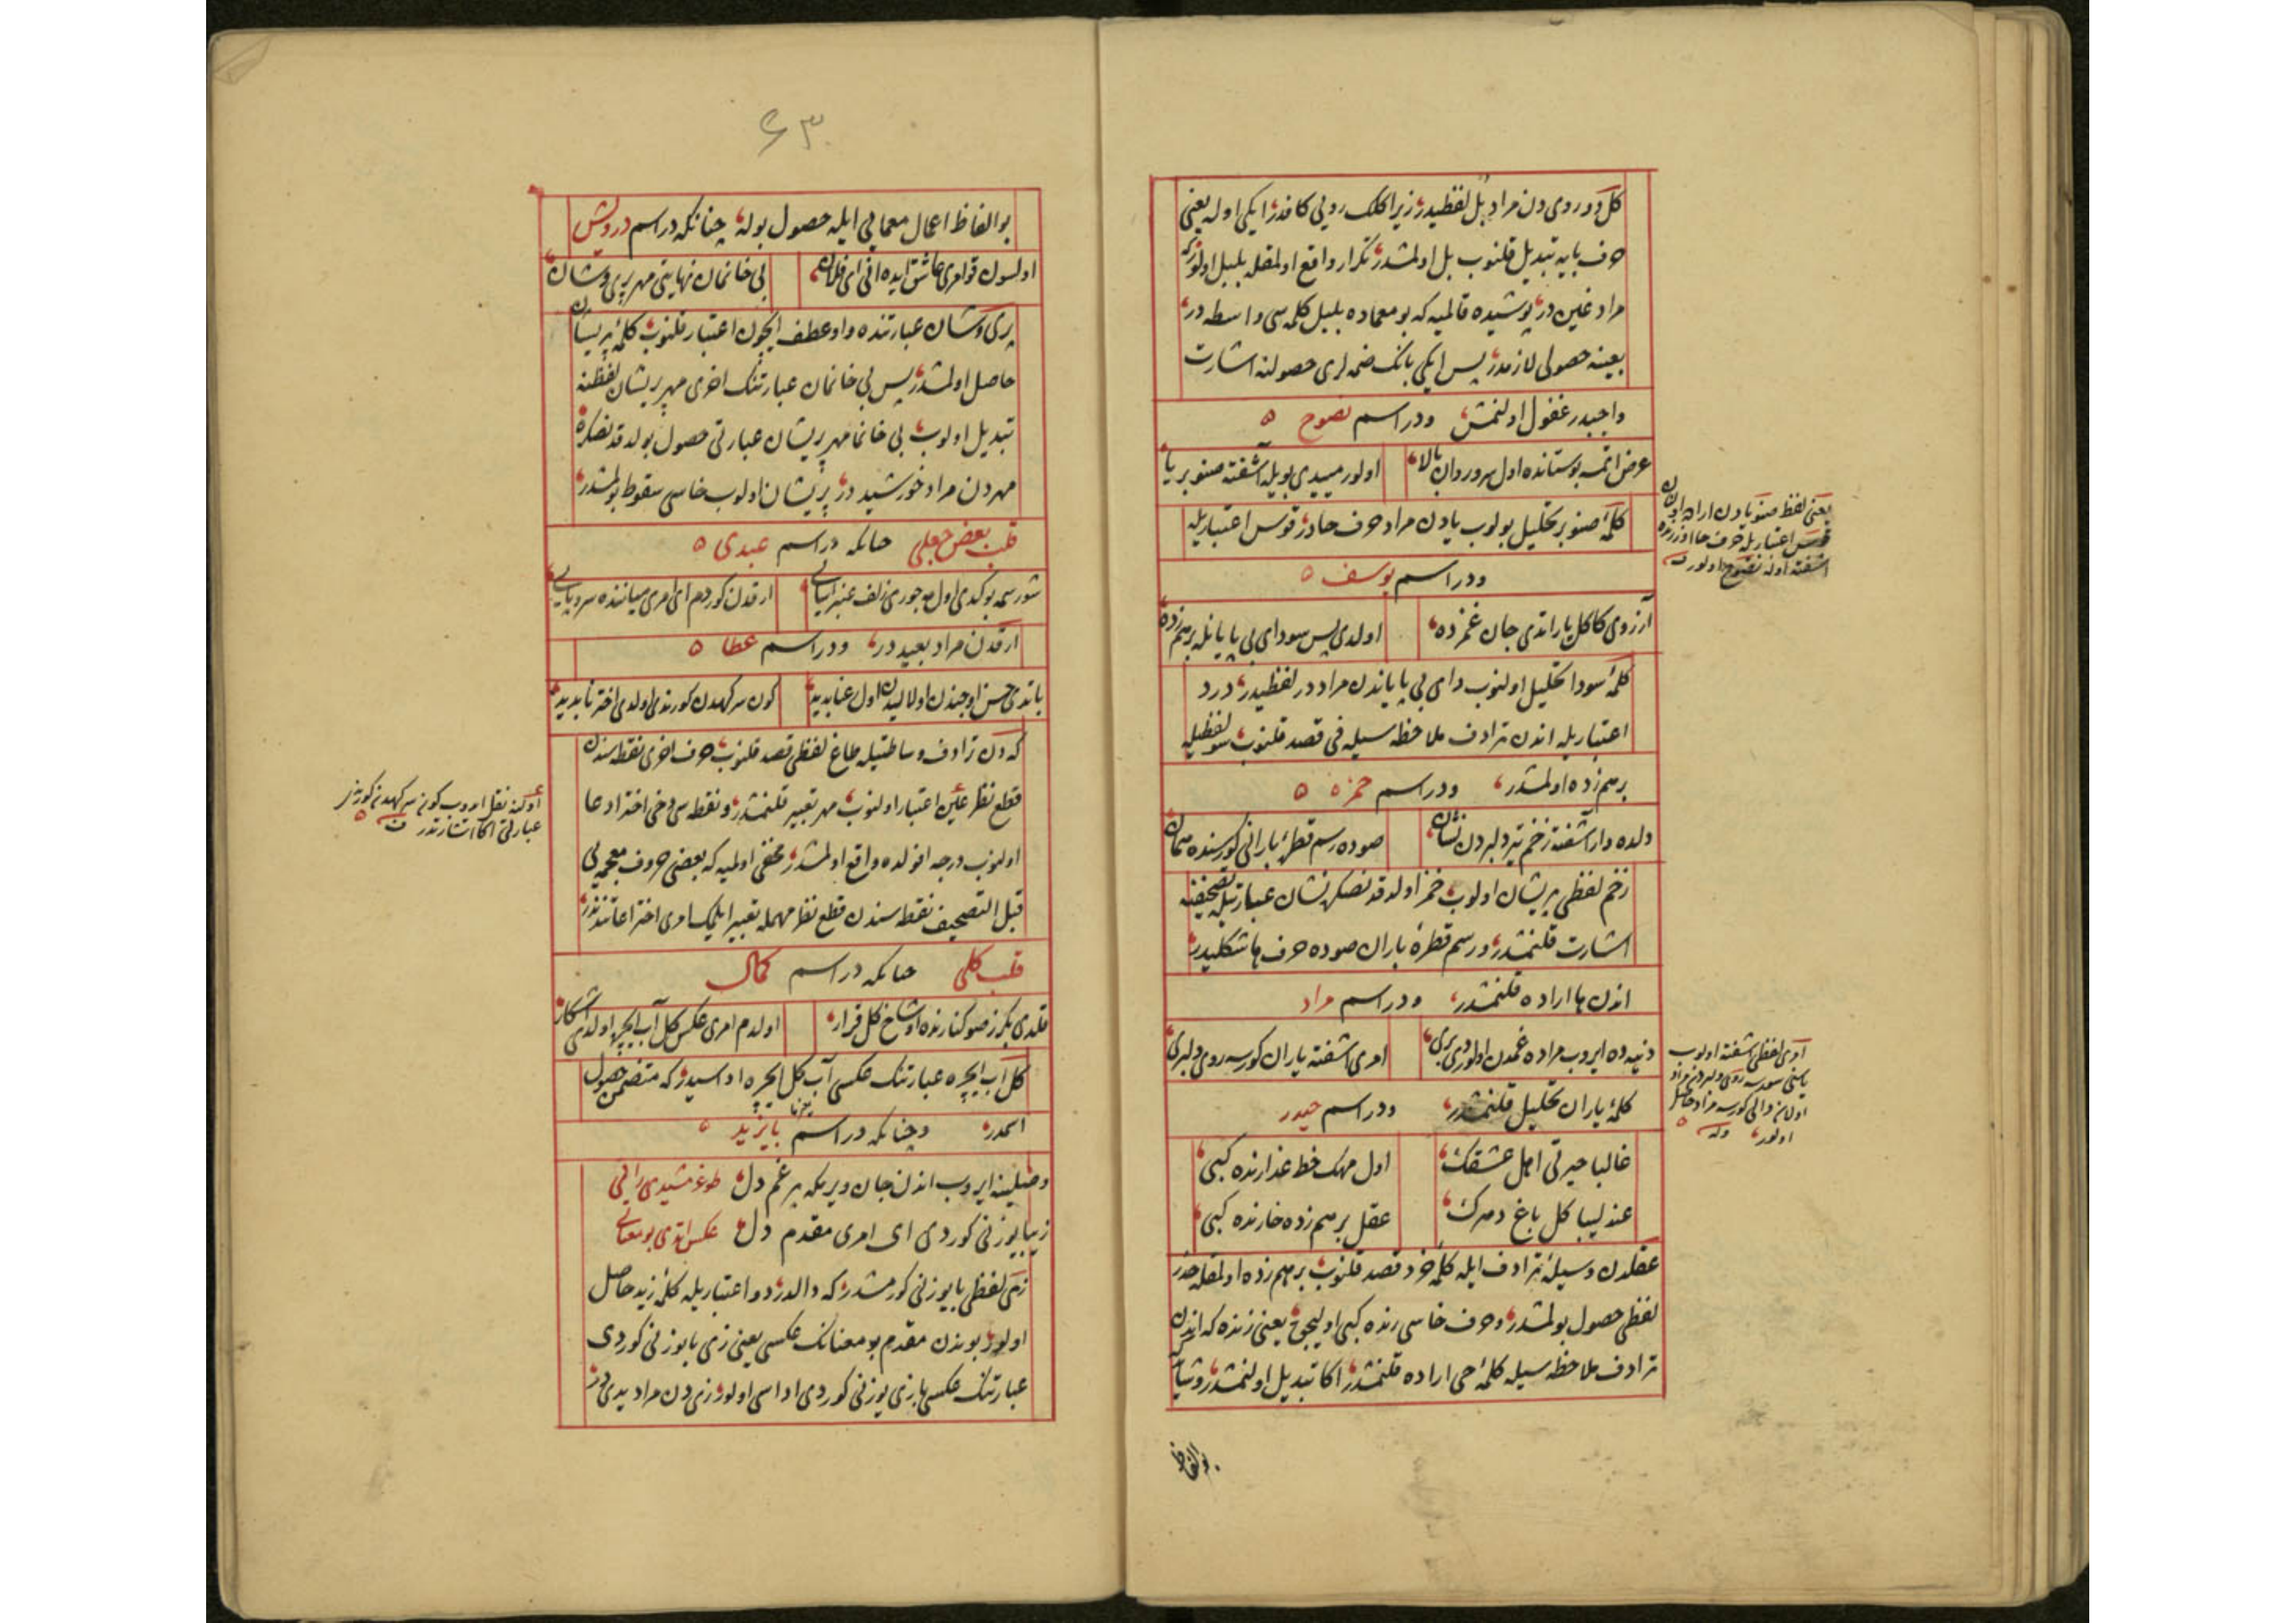 کل دو روی دن مراد بل لفظیدر زیرا کلک رویی کافدر ایکی اوله یعنی
حرف بایه تبدیل قلنوب بل اولمشدر تکرار واقع اولمغله بلبل اولور که
مراد غین در پوشیده قالمیه که بو معماده بلبل کلمه سی واسطه در
بعینه حصولی لازمدر پس ایکی بانک ضمه لری حصولنه اشارت
واجبدر غفول اولنمش ودر اسم نصوح
عرض اتمه بوستانده اول سرو روان بالا
اولور میدی بویله آشفته صنوبر یا
کلمۀ صنوبر تحلیل بولوب یادن مراد حرف حادر قوس اعتباریله
ودر اسم یوسف
آرزوی کاکل یار اتدی جان غمزده
اولدی پس سودای بی پایانله برهم زده
کلمۀ سودا تحلیل اولنوب دای بی پایاندن مراد در لفظیدر درد
اعتباریله اندن ترادف ملاحظه سیله فی قصد قلنوب سو لفظیله
برهم زده اولمشدر ودر اسم حمزه
دلده وار آشفته زخم تیر دلبردن نشان
صوده رسم قطرۀ بارانی کورسنده همان
زخم لفظی پریشان اولوب خمز اولدقدنصکره نشان عبارتیله تصحیفنه
اشارت قلنمشدر ورسم قطرۀ باران صوده حرف ها شکلیدر
اندن ها اراده قلنمشدر ودر اسم مراد
دنیه ده ایروب مراده غمدن اولور بری
امری اشفته یاران کورسه روی دلبری
کلمۀ یاران تحلیل قلنمشدر ودر اسم حیدر
غالبا حیرتی اهل عشقک
اول مهک خط عذارنده کبی
عندلیبا کل باغ دهرک
عقل برهم زده خارنده کبی
عقلدن وسیلۀ ترادف ایله کلمۀ خرد قصد قلنوب برهم زده اولمغله خدر
لفظی حصول بولمشدر وحرف خاسی رنده کبی اولیجق یعنی زنده که اندن
ترادف ملاحظه سیله کلمۀ حی اراده قلنمشدر اکا تبدیل اولنمشدر
بو الفاظ
یعنی لفظ صنو یادن اراده اولنان
قوس اعتباریله حرف حا اوزرره
اشفته اوله نصوح اولور
امری لفظی اشفته اولوب
یاسنی سورسه روی دلبردن مراد
اولان دالی کورسه مراد حاصل
اولور
۶۳
بو الفاظ اعمال معمایی ایله حصول بوله چنانکه در اسم درویش
اولسون قو امری عاشق ایده انی ای فلان
بی خانمان نهایتی مهر پری وشان
پری وشان عبارتنده واو عطف ایچون اعتبار قلنوب کلمۀ پریشان
حاصل اولمشدر پس بی خانمان عبارتنک اخری مهر پریشان لفظنه
تبدیل اولوب بی خانما مهر پریشان عبارتی حصول بولدقدنصکره
مهردن مراد خورشید در پریشان اولوب خاسی سقوط بولمشدر
قلب بعض جعلی چنانکه در اسم عبدی
ارقدن کوردم ای امری میاننده سر و پایی
ارقدن مراد بعید در ودر اسم عطا
کون سر کهدن کورندی اولدی اختر نابدید
که دن ترادف وساطتیله طاغ لفظی قصد قلنوب حرف اخری نقطه سندن
قطع نظر عین اعتبار اولنوب مهر تعبیر قلنمشدر ونقطه سی دخی اختر ادعا
اولنوب درجه افولده واقع اولمشدر مخفی اولمیه که بعضی حروف معجمه یی
قبل التصحیف نقطه سندن قطع نظر مهمله تعبیر ایلمک امری اختراعاتندندر
قلب کلی چنانکه در اسم کمال
قلدی بکزر صو کنارنده او شاخ کل قرار
اولدم امری عکس کل آب ایچره اولدی آشکار
کل آب ایچره عبارتنک عکسی آب کل ایچره اداسیدر که متضمن حصول
اسمدر وچنانکه در اسم بایزید
وصلینه ایروب اندن جان ویریکه بر غم دل
زیبا یوزنی کوردی ای امری مقدم دل عکس اتدی بو معنایی
زی لفظی با یوزنی کورمشدر که دالدر دو اعتباریله کلمۀ زید حاصل
اولور بوندن مقدم بو معنانک عکسی یعنی زی با یوزنی کوردی
عبارتنک عکسی با زی یوزنی کوردی اداسی اولور زی دن مراد یدی در
عبارتی اکا اشارتدر